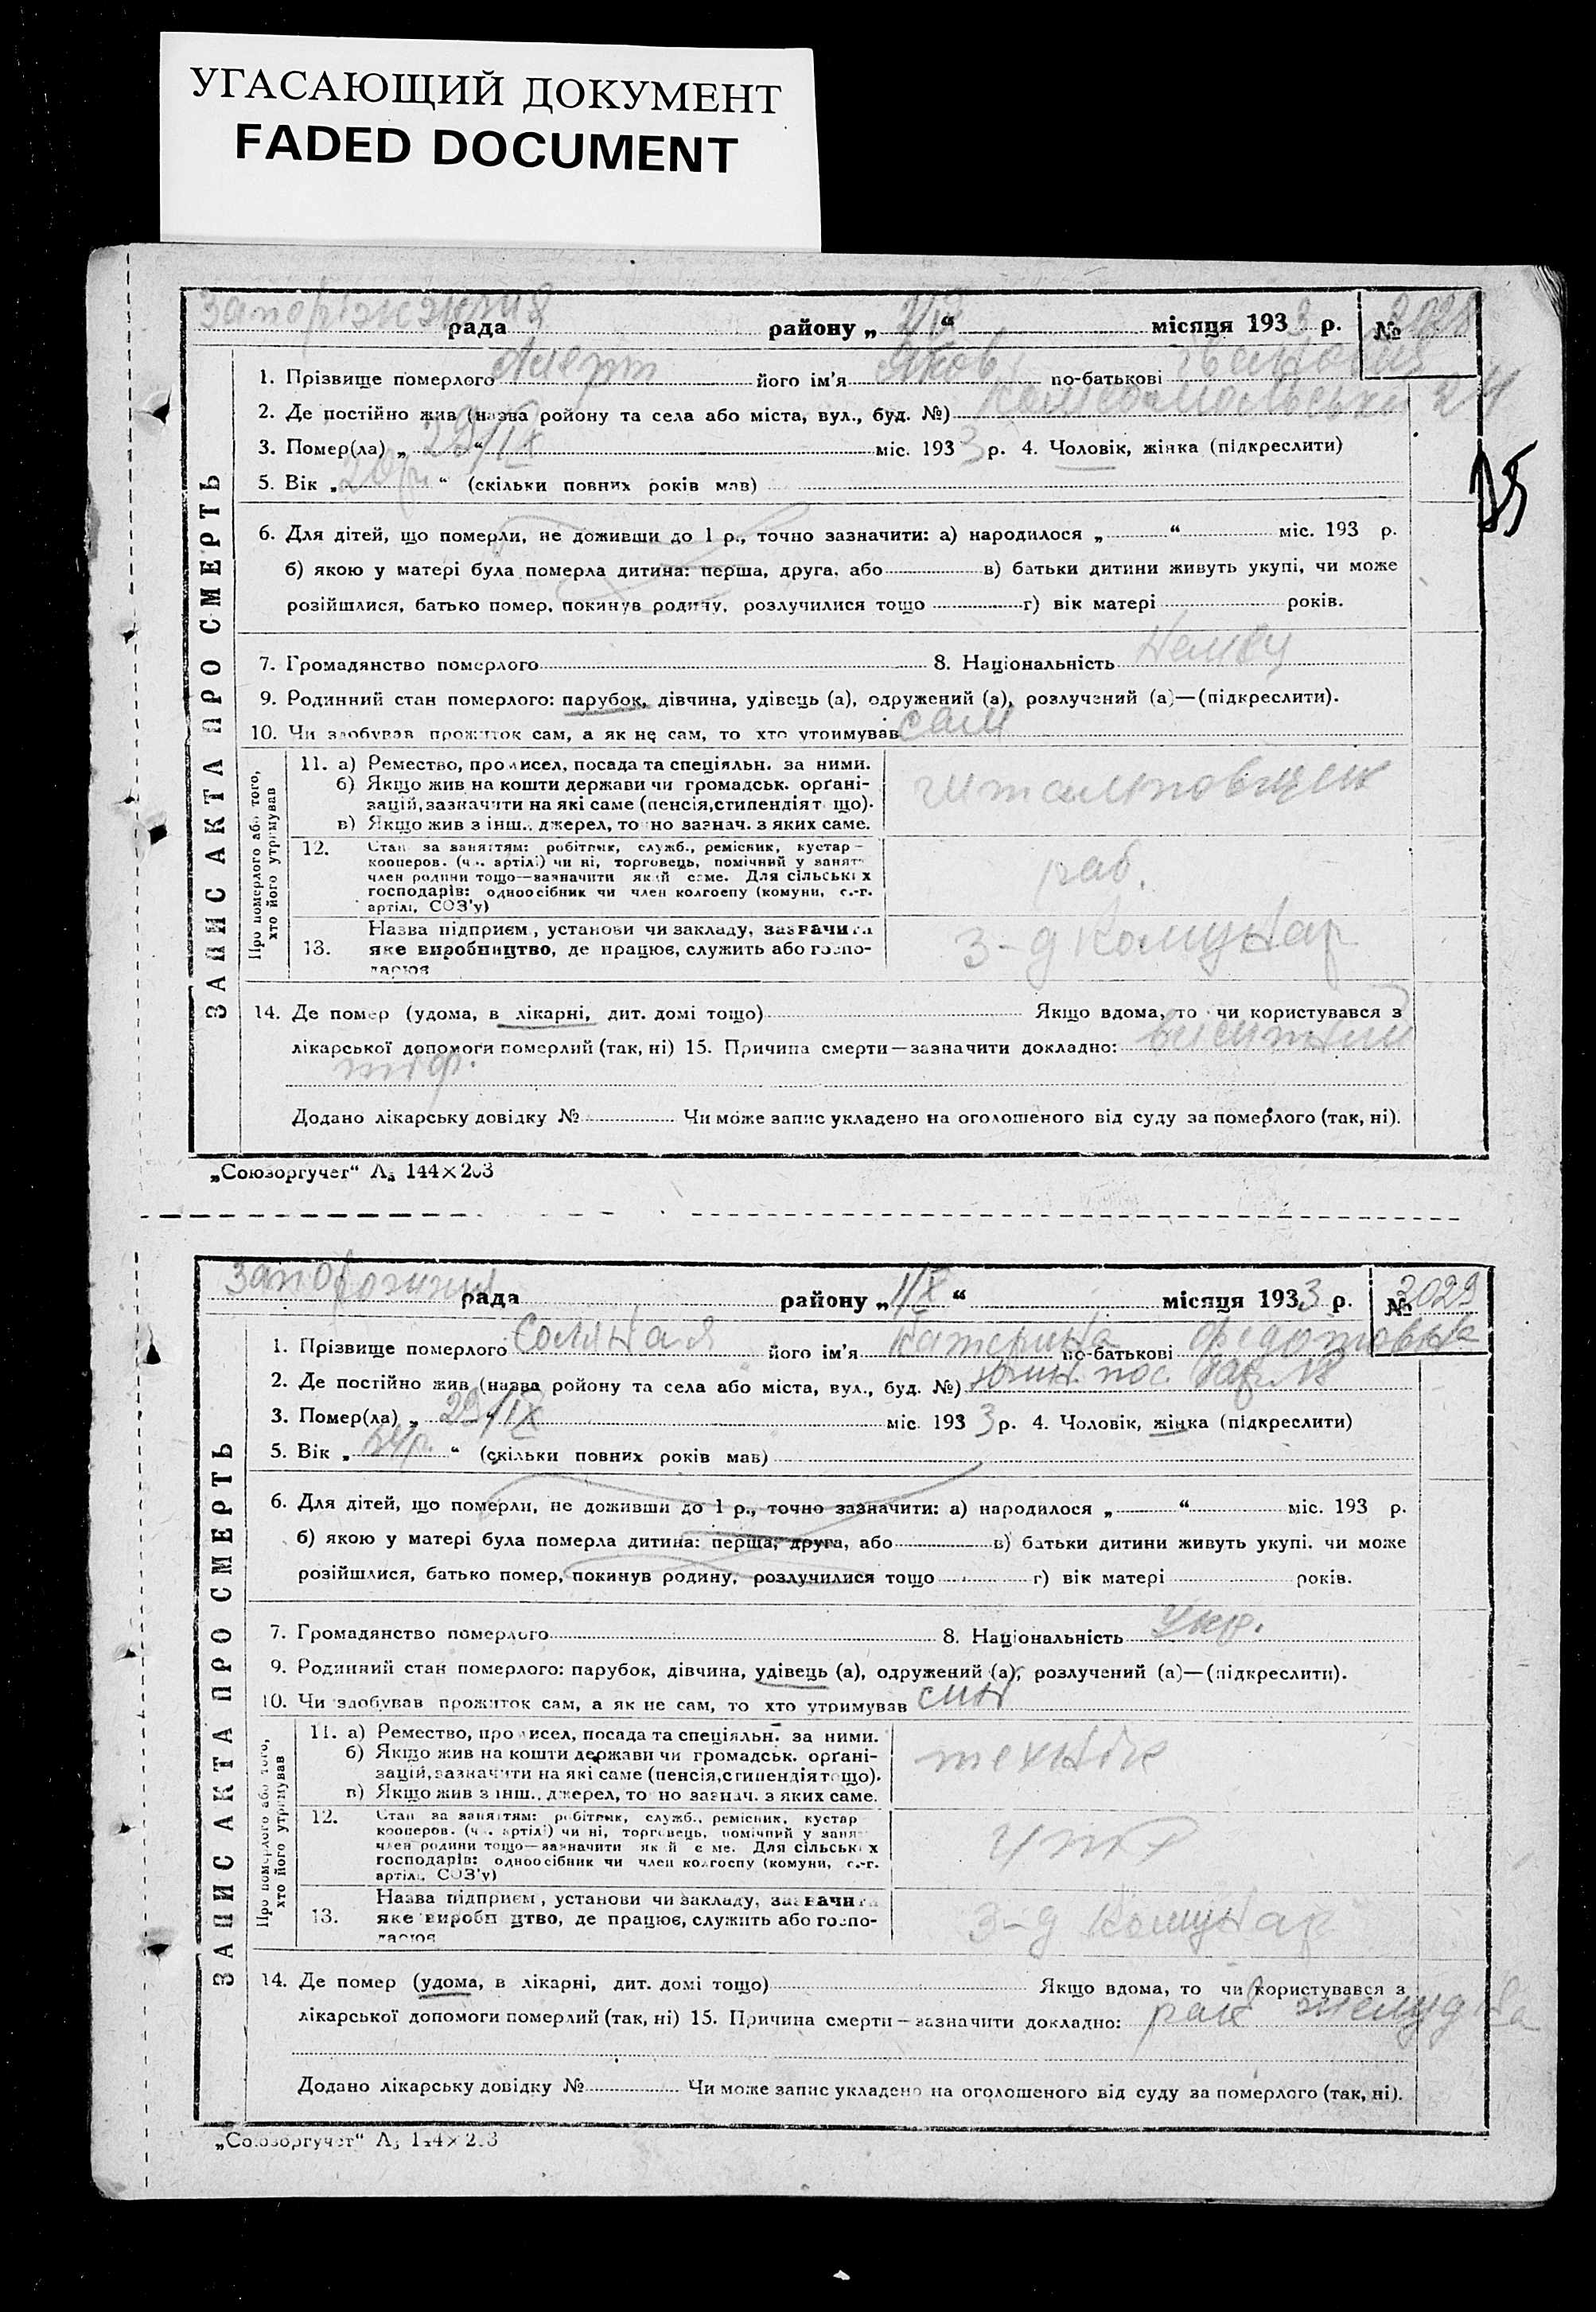 УГАСАЮЩИЙ ДОКУМЕНТ
FADED DOCUMENT
рада району „ “ місяця 1933 р. № 2028
1. Прізвище померлого його ім'я Яков по-батькові Іванович
2. Де постійно жив (назваройону та села або міста, вул., буд. №) 24
3. Помер(ла) „ 29/IX “ міс. 1933 р. 4. Чоловік, жінка (підкреслити)
5. Вік „ “ (скільки повних років мав)
25
6. Для дітей, що померли, не доживши до 1 р., точно зазначити: а) народилося „ “ міс. 193 р.
б) якою у матері була померла дитина: перша, друга, або в) батьки дитини живуть укупі, чи може
розійшлися, батько помер, покинув родину, розлучилися тощо г) вік матері років.
7. Громадянство померлого 8. Національність
9. Родинний стан померлого: парубок, дівчина, удівець (а), одружений (а), розлучений (а)—(підкреслити).
10. Чи здобував прожиток сам, а як не сам, то хто утримував сам
ЗАПИС АКТА ПРО СМЕРТЬ
Про померлого або того,
хто його утримував
11. а) Ремество, промисел, посада та спеціяльн. за ними.
б) Якщо жив на кошти держави чи громадськ. орґані-
зацій, зазначити на які саме (пенсія, стипендія тощо).
в) Якщо жив з інш. джерел, точно зазнач. з яких саме.
штамповщик
12. Стан за заняттям: робітник, служб., ремісник, кустар—
кооперов. (чл. артілі) чи ні, торговець, помічний у занят.
член родини тощо—зазначити який саме. Для сільських
господарів: одноосібник чи член колгоспу (комуни, с.-г.
артілі, СОЗ'у)
раб.
13. Назва підприєм., установи чи закладу, зазначити
яке виробництво, де працює, служить або госпо-
дарює
з-д Комунар
14. Де помер (удома, в лікарні, дит. домі тощо) Якщо вдома, то чи користувався з
лікарської допомоги померлий (так, ні) 15. Причина смерти—зазначити докладно:
тіф.
Додано лікарську довідку № Чи може запис укладено на оголошеного від суду за померлого (так, ні).
„Союзоргучет“ А₅ 144×203
рада району „ 1/X “ місяця 1933 р. № 2029
1. Прізвище померлого Соляная його ім'я Катерина по-батькові Федотовна
2. Де постійно жив (назва району та села або міста, вул., буд. №)
3. Помер(ла) „ 29/IX “ міс. 1933 р. 4. Чоловік, жінка (підкреслити)
5. Вік „ “ (скільки повних років мав)
6. Для дітей, що померли, не доживши до 1 р., точно зазначити: а) народилося „ “ міс. 193 р.
б) якою у матері була померла дитина: перша, друга, або в) батьки дитини живуть укупі, чи може
розійшлися, батько помер, покинув родину, розлучилися тощо г) вік матері років.
7. Громадянство померлого 8. Національність Укр.
9. Родинний стан померлого: парубок, дівчина, удівець (а), одружений (а), розлучений (а)—(підкреслити).
10. Чи здобував прожиток сам, а як не сам, то хто утримував син
ЗАПИС АКТА ПРО СМЕРТЬ
Про померлого або того,
хто його утримував
11. а) Ремество, промисел, посада та спеціяльн. за ними.
б) Якщо жив на кошти держави чи громадськ. орґані-
зацій, зазначити на які саме (пенсія, стипендія тощо).
в) Якщо жив з інш. джерел, точно зазнач. з яких саме.
технік
12. Стан за заняттям: робітник, служб., ремісник, кустар
кооперов. (чл. артілі) чи ні, торговець, помічний у занят.
член родини тощо—зазначити який саме. Для сільських
господарів: одноосібник чи член колгоспу (комуни, с.-г.
артілі, СОЗ'у)
13. Назва підприєм., установи чи закладу, зазначити
яке виробництво, де працює, служить або госпо-
дарює
з-д Комунар
14. Де помер (удома, в лікарні, дит. домі тощо) Якщо вдома, то чи користувався з
лікарської допомоги померлий (так, ні) 15. Причина смерти—зазначити докладно: рак желудка
Додано лікарську довідку № Чи може запис укладено на оголошеного від суду за померлого (так, ні).
„Союзоргучет“ А₅ 144×203